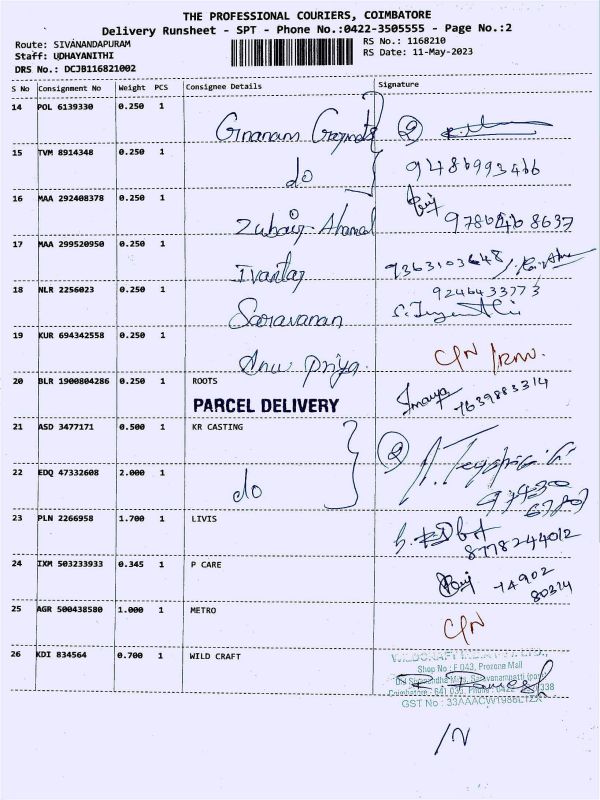 THE PROFESSIONAL COURIERS, COIMBATORE
Delivery Runsheet - SPT - Phone No.:0422-3505555 - Page No.:2
Route: SIVANANDAPURAM
RS No.: 1168210
Staff: UDHAYANITHI
RS Date: 11-May-2023
DRS No.: DCJB116821002
S No Consignment No Weight PCS Consignee Details Signature
14 POL 6139330 0.250 1 Gnanam
15 TVM 8914348 0.250 1 do 9486993466
16 MAA 292408378 0.250 1 Zubair Ahamed
17 MAA 299520950 0.250 1 9363103648
18 NLR 2256023 0.250 1 Saravanan 9246433773
19 KUR 694342558 0.250 1 Anu Priya. C/N
20 BLR 1900804286 0.250 1 ROOTS 7639883314
PARCEL DELIVERY
21 ASD 3477171 0.500 1 KR CASTING
22 EDQ 47332608 2.000 1 do
23 PLN 2266958 1.700 1 LIVIS 8778244012
24 IXM 503233933 0.345 1 P CARE
25 AGR 500438580 1.000 1 METRO C/N
26 KDI 834564 0.700 1 WILD CRAFT
Shop No : F 043, Prozone Mall
/N